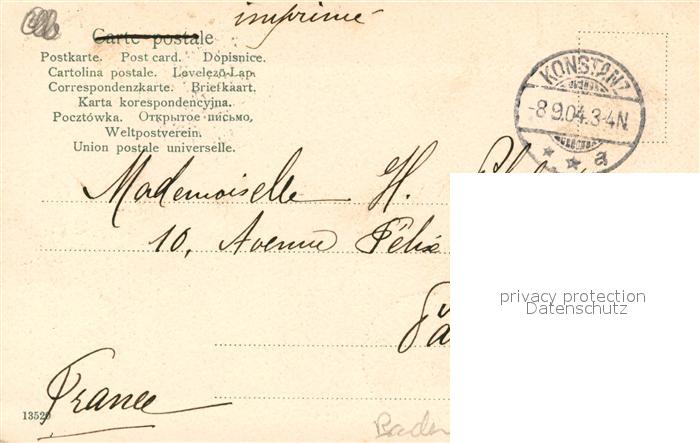 imprimé
Carte postale
Postkarte. Post card. Dopisnice.
Cartolina postale. Levelező-Lap.
Correspondenzkarte. Briefkaart.
Karta korespondencyjna.
Pocztówka. Открытое письмо,
Weltpostverein.
Union postale universelle.
KONSTANZ
-8 9.04.3-4N.
* * a
Mademoiselle H.
10, Avenue Félix
privacy protection
Datenschutz
France
13529
Baden